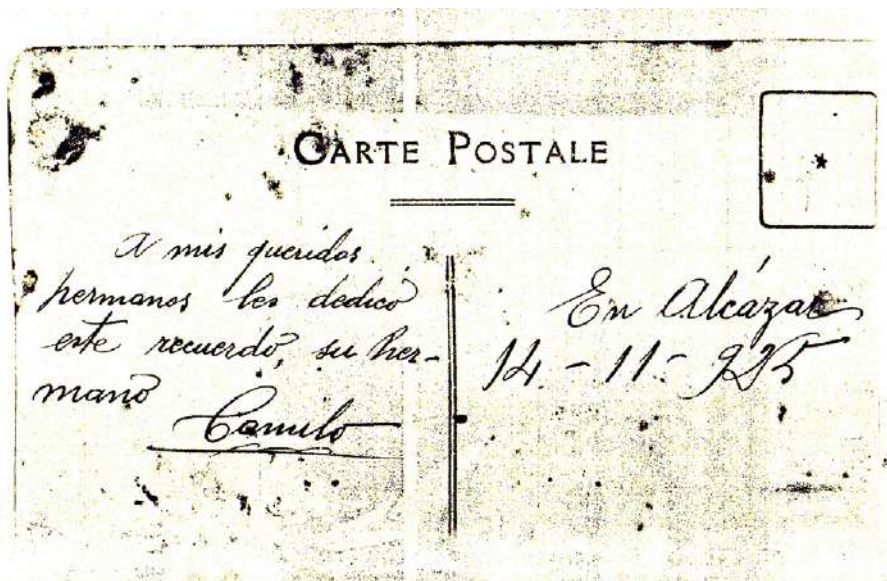 CARTE POSTALE
A mis queridos
hermanos les dedico
este recuerdo, su her-
mano
Camilo
En Alcázar
14.-11.-925